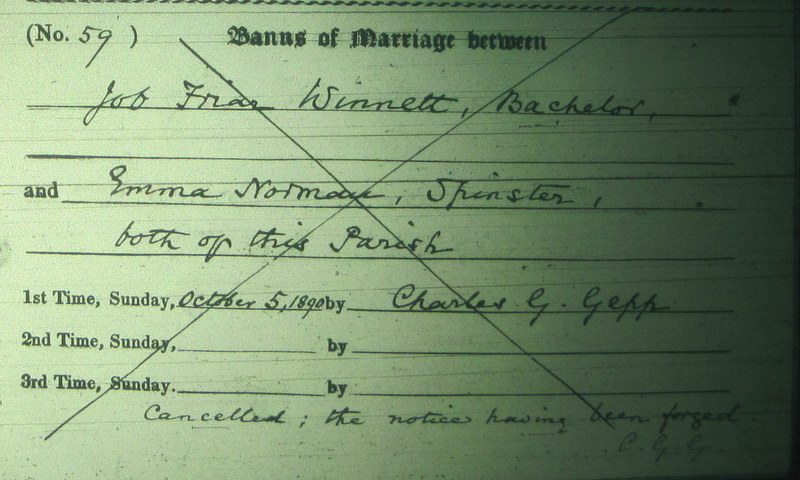 (No. 59 ) Banns of Marriage between
Job Friar Winnett, Bachelor,
and Emma Norman, Spinster,
both of this Parish
1st Time, Sunday, October 5, 1890 by Charles G. Gepp
2nd Time, Sunday, by
3rd Time, Sunday. by
Cancelled ; the notice having been forged.
C. G. G.